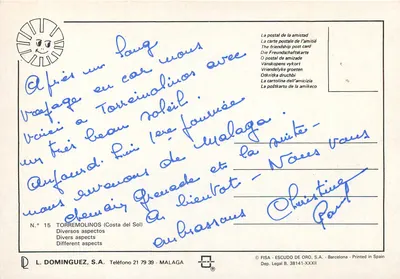 La postal de la amistad
La carte postale de l'amitié
The friendship post card
Die Freundschaftskarte
O postal de amizade
Vänskapens vykort
Vriendelijke groeten
La cartolina dell'amicizia
Après un long
voyage en car nous
voici à Torremolinos avec
un très beau soleil.
Aujourd'hui 1ère journée
nous revenons de Malaga.
demain Grenade et la suite-
A bientôt - Nous vous
embrassons Christine
N.º 15 TORREMOLINOS (Costa del Sol)
Diversos aspectos
Divers aspects
Different aspects
L. DOMINGUEZ, S.A. Teléfono 21 79 39 - MALAGA
© FISA - ESCUDO DE ORO, S.A. - Barcelona - Printed in Spain
Dep. Legal B. 38141-XXXII